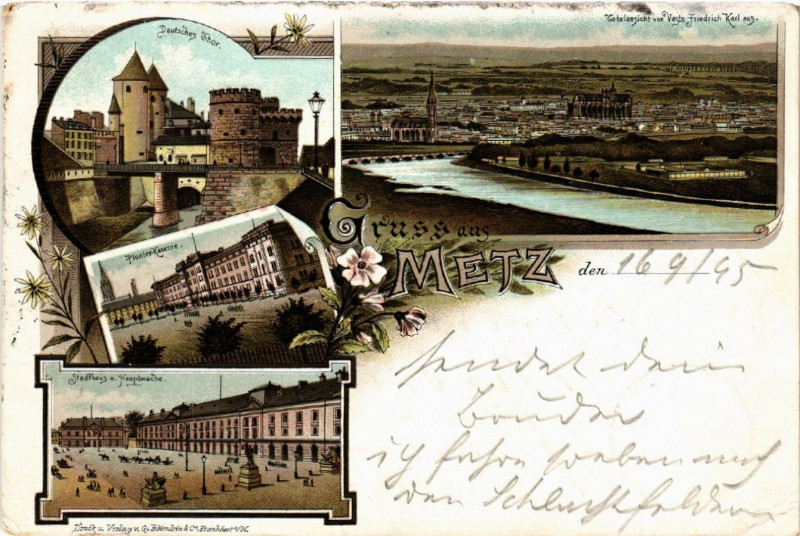 Deutsches Thor.
Totalansicht von Veste Friedrich Karl aus.
Pionier-Kaserne.
Gruss aus
METZ
den 16 9/95
sendet dein
Bruder
ich fahre soeben auf
den Schlachtfeldern
Stadthaus u. Hauptwache.
Druck u. Verlag v. G. Blümlein & Co. Frankfurt a/M.